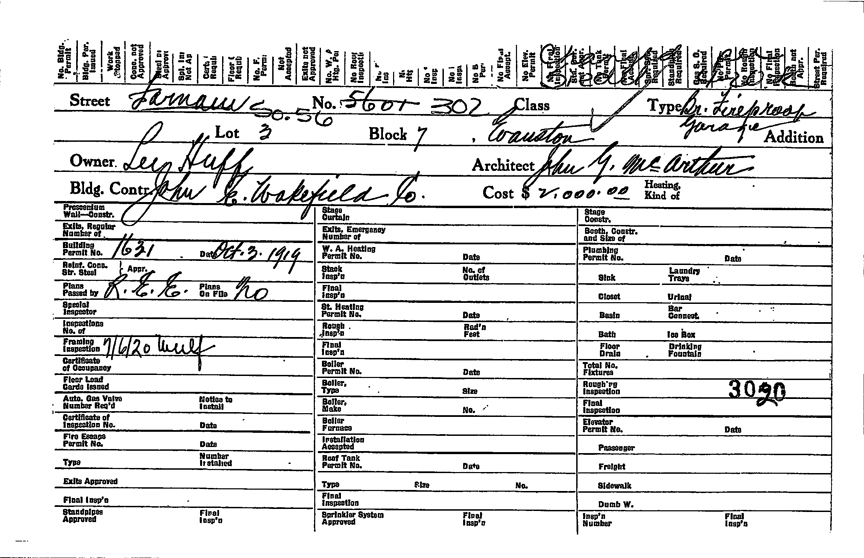 No Bldg. Permit
Bldg. Per. Issued
Work Stopped
Conn. not Approved
Not Accepted
Exits not Approved
No Elev. Permit
Street Farnam So. 56 No. 5601 302 Class Type Or. Fireproof
Garage
Lot 3 Block 7 Evanston Addition
Owner Leo Huff Architect John G. McArthur
Bldg. Contr. John E. Wakefield Co. Cost $ 2,000.00 Heating, Kind of
Proscenium Wall—Constr.
Stage Curtain
Stage Constr.
Exits, Regular Number of
Exits, Emergency Number of
Booth, Constr. and Size of
Building Permit No. 1631 Date Oct. 3. 1919
W. A. Heating Permit No. Date
Plumbing Permit No. Date
Reinf. Conc. Str. Steel Appr.
Stack Insp'n No. of Outlets
Sink Laundry Trays
Plans Passed by R. E. E. Plans On File No
Final Insp'n
Closet Urinal
Special Inspector
St. Heating Permit No. Date
Basin Bar Connect.
Inspections No. of
Rough Insp'n Rad'n Feet
Bath Ice Box
Framing Inspection 7/6/20 Wulf
Final Insp'n
Floor Drain Drinking Fountain
Certificate of Occupancy
Boiler Permit No. Date
Total No. Fixtures
Floor Load Cards Issued
Boiler, Type Size
Rough'rg Inspection 3020
Auto. Gas Valve Number Req'd Notice to Install
Boiler, Make No.
Final Inspection
Certificate of Inspection No. Date
Boiler Furnace
Elevator Permit No. Date
Fire Escape Permit No. Date
Installation Accepted
Passenger
Type Number Installed
Roof Tank Permit No. Date
Freight
Exits Approved
Type Size No.
Sidewalk
Final Insp'n
Final Inspection
Dumb W.
Standpipes Approved Final Insp'n
Sprinkler System Approved Final Insp'n
Insp'n Number Final Insp'n